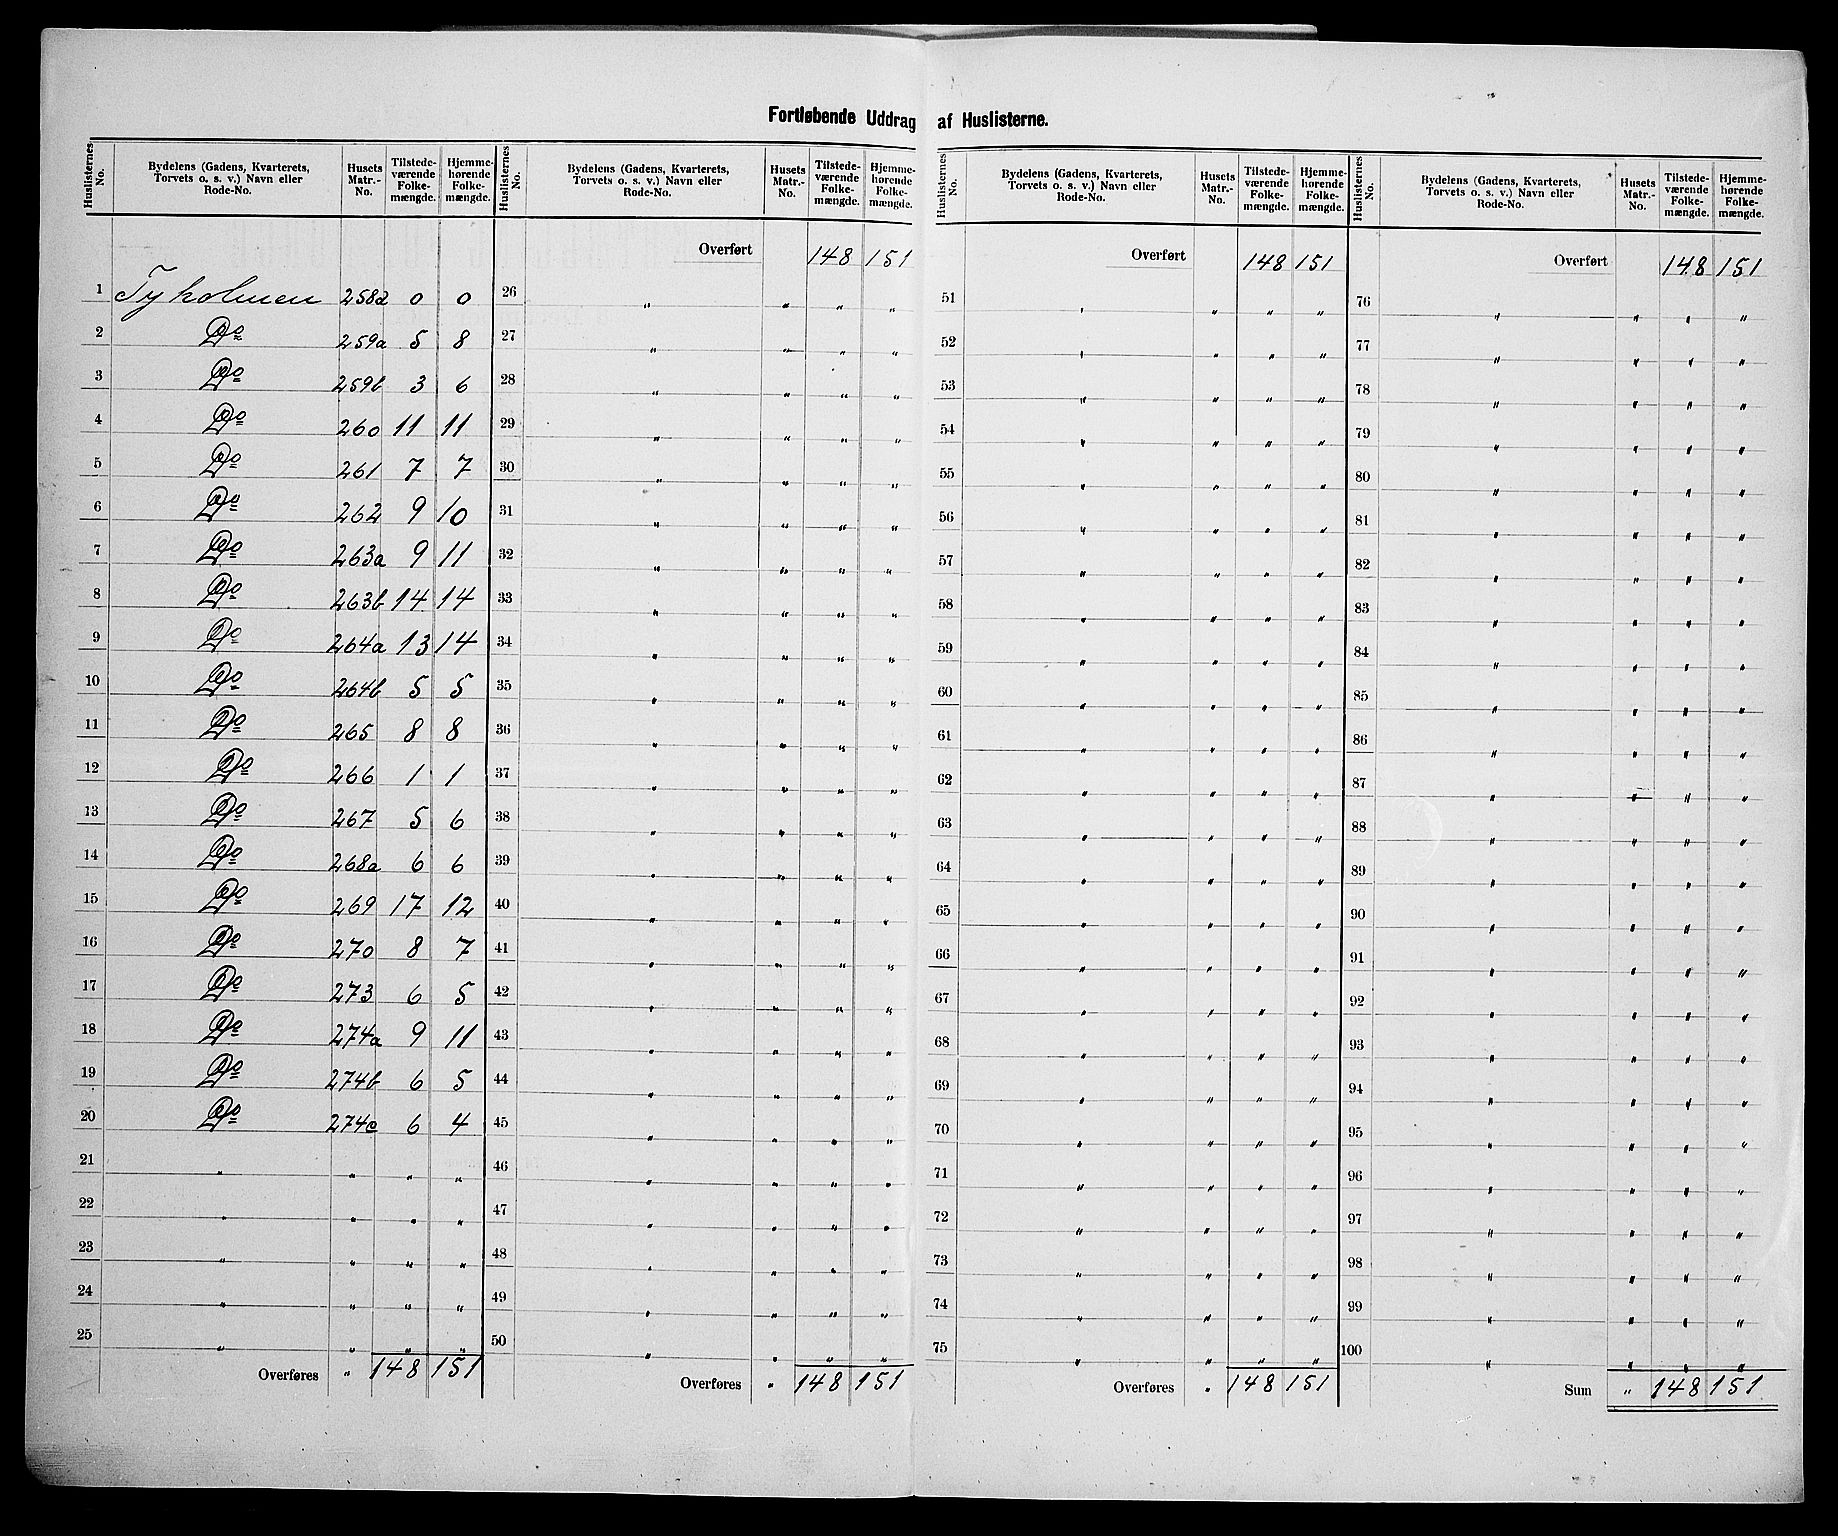 Fortløbende Uddrag af Huslisterne.
Huslisternes No. | Bydelens (Gadens, Kvarterets, Torvets o. s. v.) Navn eller Rode-No. | Husets Matr.-No. | Tilstedeværende Folkemængde. | Hjemmehørende Folkemængde.
1 Tyholmen 258a 0 0
2 Do 259a 5 8
3 Do 259b 3 6
4 Do 260 11 11
5 Do 261 7 7
6 Do 262 9 10
7 Do 263a 9 11
8 Do 263b 14 14
9 Do 264a 13 14
10 Do 264b 5 5
11 Do 265 8 8
12 Do 266 1 1
13 Do 267 5 6
14 Do 268a 6 6
15 Do 269 17 12
16 Do 270 8 7
17 Do 273 6 5
18 Do 274a 9 11
19 Do 274b 6 5
20 Do 274c 6 4
21 " " " "
22 " " " "
23 " " " "
24 " " " "
25 " " " "
Overføres " 148 151
Huslisternes No. | Bydelens (Gadens, Kvarterets, Torvets o. s. v.) Navn eller Rode-No. | Husets Matr.-No. | Tilstedeværende Folkemængde. | Hjemmehørende Folkemængde.
Overført 148 151
26 " " " "
27 " " " "
28 " " " "
29 " " " "
30 " " " "
31 " " " "
32 " " " "
33 " " " "
34 " " " "
35 " " " "
36 " " " "
37 " " " "
38 " " " "
39 " " " "
40 " " " "
41 " " " "
42 " " " "
43 " " " "
44 " " " "
45 " " " "
46 " " " "
47 " " " "
48 " " " "
49 " " " "
50 " " " "
Overføres " 148 151
Huslisternes No. | Bydelens (Gadens, Kvarterets, Torvets o. s. v.) Navn eller Rode-No. | Husets Matr.-No. | Tilstedeværende Folkemængde. | Hjemmehørende Folkemængde.
Overført 148 151
51 " " " "
52 " " " "
53 " " " "
54 " " " "
55 " " " "
56 " " " "
57 " " " "
58 " " " "
59 " " " "
60 " " " "
61 " " " "
62 " " " "
63 " " " "
64 " " " "
65 " " " "
66 " " " "
67 " " " "
68 " " " "
69 " " " "
70 " " " "
71 " " " "
72 " " " "
73 " " " "
74 " " " "
75 " " " "
Overføres " 148 151
Huslisternes No. | Bydelens (Gadens, Kvarterets, Torvets o. s. v.) Navn eller Rode-No. | Husets Matr.-No. | Tilstedeværende Folkemængde. | Hjemmehørende Folkemængde.
Overført 148 151
76 " " " "
77 " " " "
78 " " " "
79 " " " "
80 " " " "
81 " " " "
82 " " " "
83 " " " "
84 " " " "
85 " " " "
86 " " " "
87 " " " "
88 " " " "
89 " " " "
90 " " " "
91 " " " "
92 " " " "
93 " " " "
94 " " " "
95 " " " "
96 " " " "
97 " " " "
98 " " " "
99 " " " "
100 " " " "
Sum " 148 151